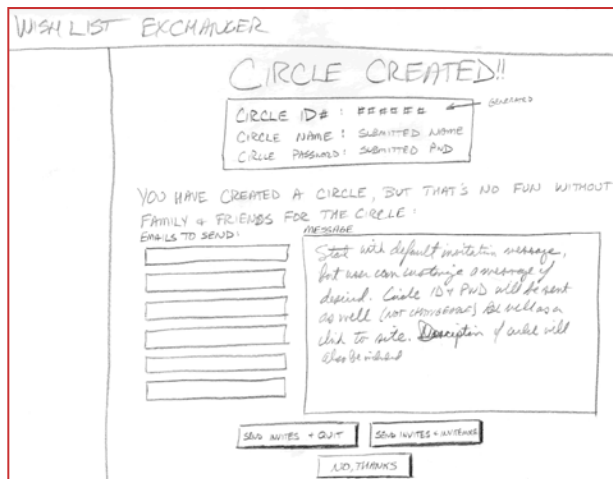 WISH LIST EXCHANGER
CIRCLE CREATED!!
CIRCLE ID# : ######
GENERATED
CIRCLE NAME : SUBMITTED NAME
CIRCLE PASSWORD : SUBMITTED PWD
YOU HAVE CREATED A CIRCLE, BUT THAT'S NO FUN WITHOUT
FAMILY & FRIENDS FOR THE CIRCLE :
EMAILS TO SEND:
MESSAGE
Start with default invitation message,
but user can customize a message if
desired. Circle ID & PWD will be sent
as well (NOT CHANGEABLE) as well as a
link to site. Description of circle will
also be
SEND INVITES + QUIT
SEND INVITES + INVITE MORE
NO, THANKS